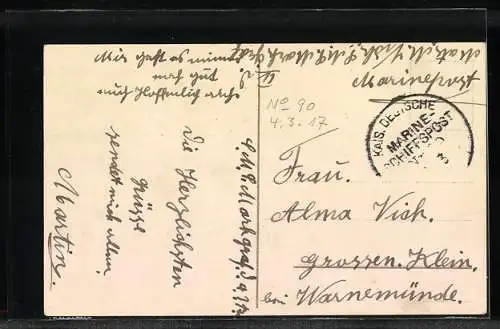 Mir geht es immer
noch gut
auch Hoffentlich euch
Marinepost
KAIS. DEUTSCHE
MARINE-
SCHIFFSPOST
No 90
4.3.17
S.M.S. Markgraf d.
Die Herzlichsten
Grüsse
sendet euch allen
Martin.
Frau.
Alma Vick.
Grossen. Klein.
bei Warnemünde.